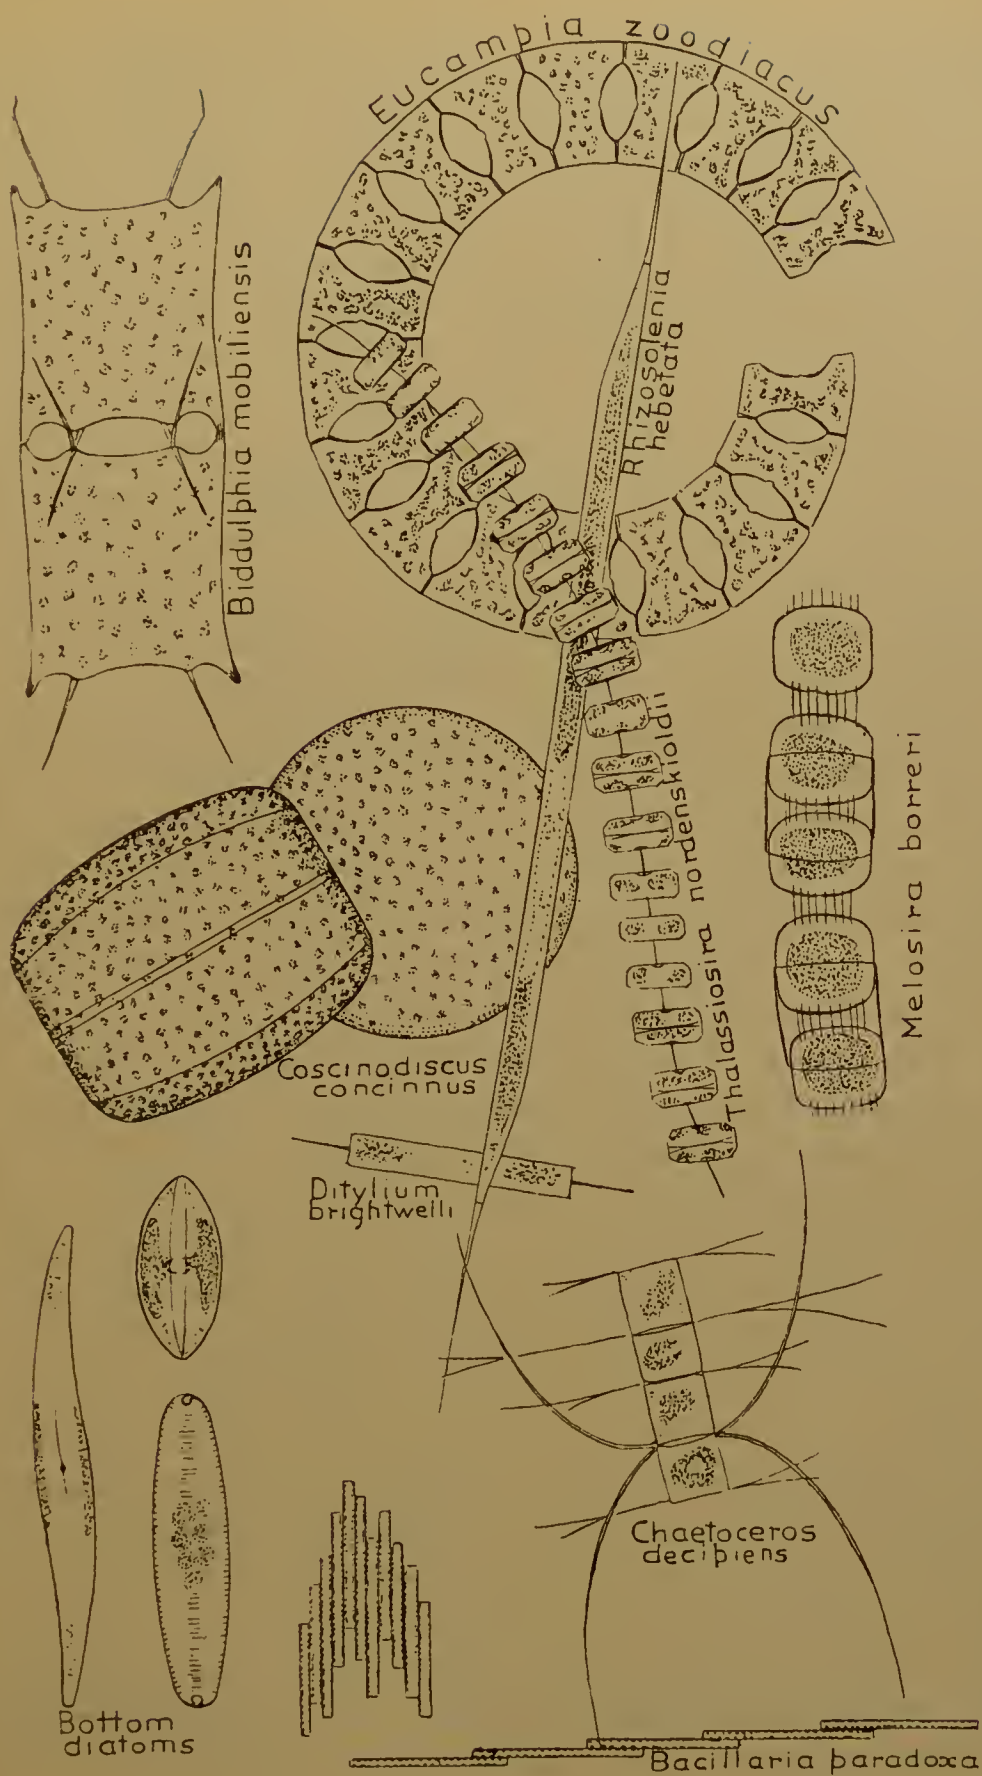 Eucampia zoodiacus
Biddulphia mobiliensis
Rhizosolenia
hebetata
Thalassiosira nordenskioldii
Melosira borreri
Coscinodiscus
concinnus
Ditylium
brightwelli
Chaetoceros
decipiens
Bottom
diatoms
Bacillaria paradoxa